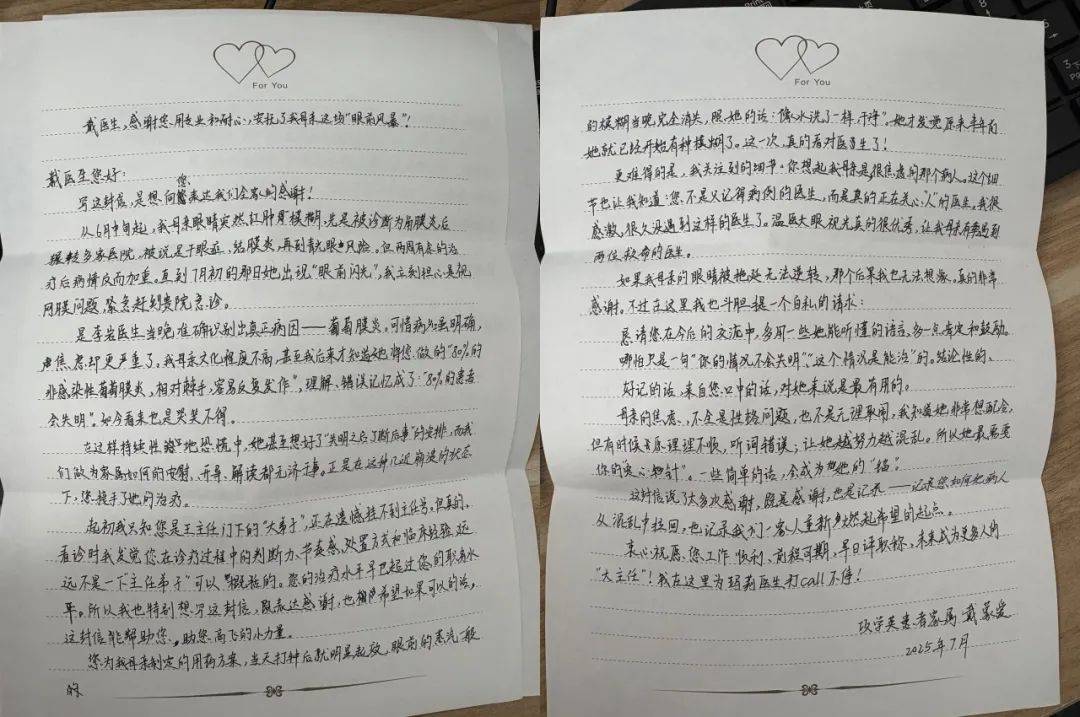 For You
戴医生，感谢您用专业和耐心，安抚了我母亲这场“眼前风暴”！
戴医生您好：
写这封信，是想向您表达我们全家的感谢！
从6月中旬起，我母亲眼睛突然红肿胃模糊，先是被诊断为角膜炎后
辗转多家医院，被说是干眼症、结膜炎，再到青光眼风险。但两周有余的治
疗后病情反而加重。直到7月初的那日她出现“眼前闪光”，我立刻担心是视
网膜问题，紧急赶到贵院急诊。
是李岩医生当晚准确识别出真正病因——葡萄膜炎。可惜病因虽明确，
焦虑却更严重了。我母亲文化程度不高，甚至我后来才知道她将您做的“80%的
非感染性葡萄膜炎，相对棘手，容易反复发作”，理解、错误记忆成了：“80%的患者
会失明”。如今看来也是哭笑不得。
在这样持续性地恐慌中，她甚至想好了“失明之后了断后事”的安排，而我
们做为家属如何的安慰、开导、解读都无济于事。正是在这种几近崩溃的状态
下，您接手了她的治疗。
起初我只知您是王主任门下的“大弟子”，还在遗憾挂不到主任号。但真的，
看诊时我发觉您在诊疗过程中的判断力、节奏感、处置方式和临床经验远
远不是一下“主任弟子”可以概括的。您的治疗水平早已超过您的职称水
平。所以我也特别想写这封信，既表达感谢，也希望如果可以的话，
这封信能帮助您，助您高飞的小力量。
您为我母亲制定的用药方案，当天打针后就明显起效，眼前的蒸汽一般
的
For You
的模糊当晚完全消失，照她的话：“像水洗了一样，干净”。她才发觉原来半年前
她就已经开始有种模糊了。这一次，真的看对医生了！
更难得的是，我关注到的细节：你想起我母亲是很焦虑的那个病人。这个细
节也让我知道：您不是只记得病例的医生，而是真的正在关心“人”的医生。我很
感激，很久没遇到这样的医生了。温医大眼视光真的很优秀，让我母亲有幸遇到
两位救命的医生。
如果我母亲的眼睛被拖延无法逆转，那个后果我也无法想象。真的非常
感谢。不过在这里我也斗胆提一个自私的请求：
恳请您在今后的交流中，多用一些她能听懂的语言，多一点肯定和鼓励。
哪怕只是一句“你的情况不会失明”“这个情况是能治”的。结论性的、
好记的话，来自您口中的话，对她来说是最有用的。
母亲的焦虑，不全是性格问题，也不是无理取闹，我知道她非常想配合，
但有时候信息理理不顺，听词错误，让她越努力越混乱。所以她最需要
你的“定心神针”。一些简单的话，会成为她的“锚”。
这封信说了太多次感谢，既是感谢，也是记录——记录您如何把病人
从混乱中拉回，也记录我们一家人重新燃起希望的起点。
衷心祝愿您工作顺利，前程可期，早日评职称，未来成为更多人的
“大主任”！我在这里为玛莉医生打call不停！
患者家属 戴蒙爱
2025年7月